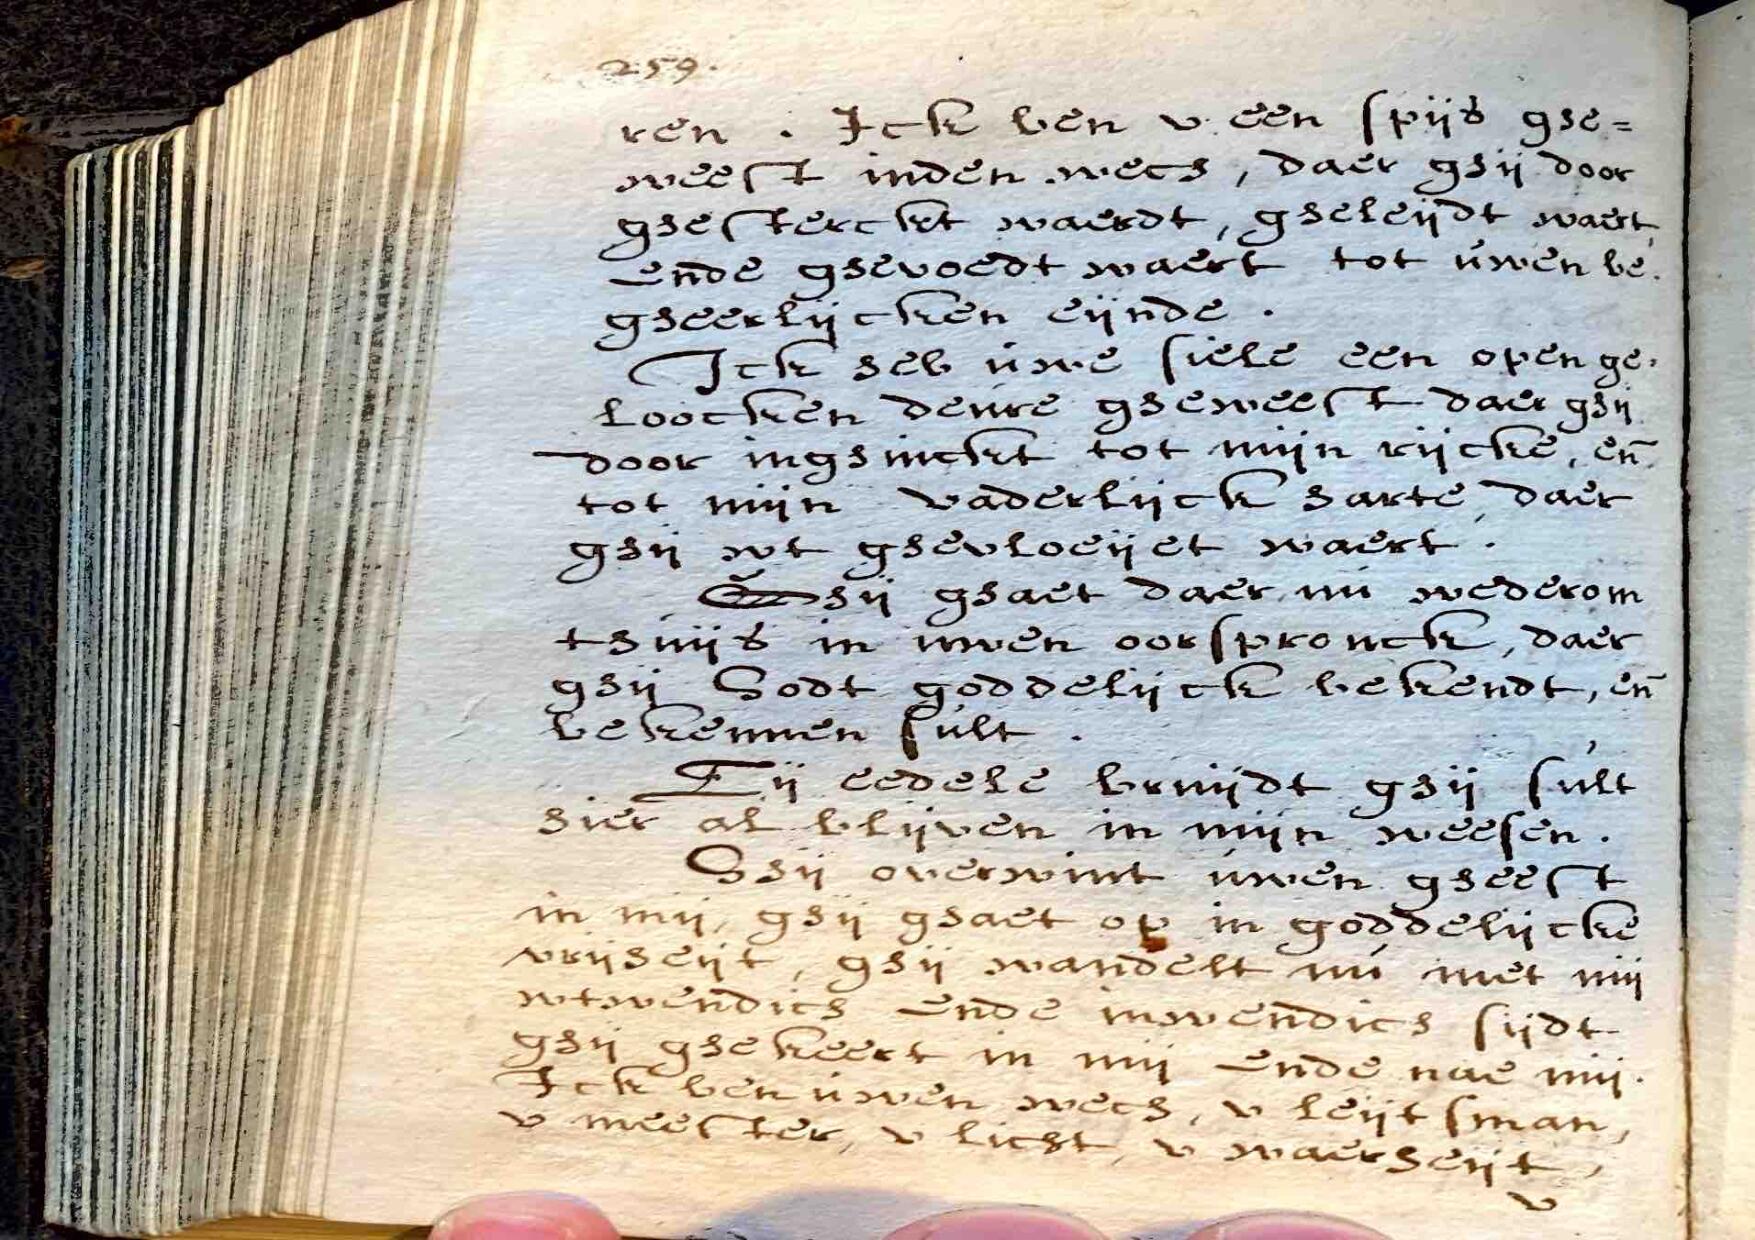 259.
ren . Ick ben v een spijs ghe=
weest inden wech, daer ghij door
ghesterckt waerdt, gheleijdt waert,
ende ghevoedt waert tot uwen be.
gheerlijcken eijnde .
Ick heb uwe siele een open ge,
loocken deure gheweest daer ghij
door inghinckt tot mijn rijcke, en̄
tot mijn vaderlijck harte, daer
ghij wt ghevloeijet waert .
Ghij ghaet daer nu wederom
thuijs in uwen oorspronck, daer
ghij Godt goddelijck bekendt, en̄
bekennen sult .
Eij eedele bruijdt ghij sult
hier al blijven in mijn weesen .
Ghij overwint uwen gheest
in mij, ghij ghaet op in goddelijcke
vrijheijt, ghij wandelt nu met mij
wtwendich ende inwendich sijdt
ghij ghekeert in mij ende nae mij.
Ick ben uwen wech, v leijtsman,
v meester, v licht, v waerheijt,
v